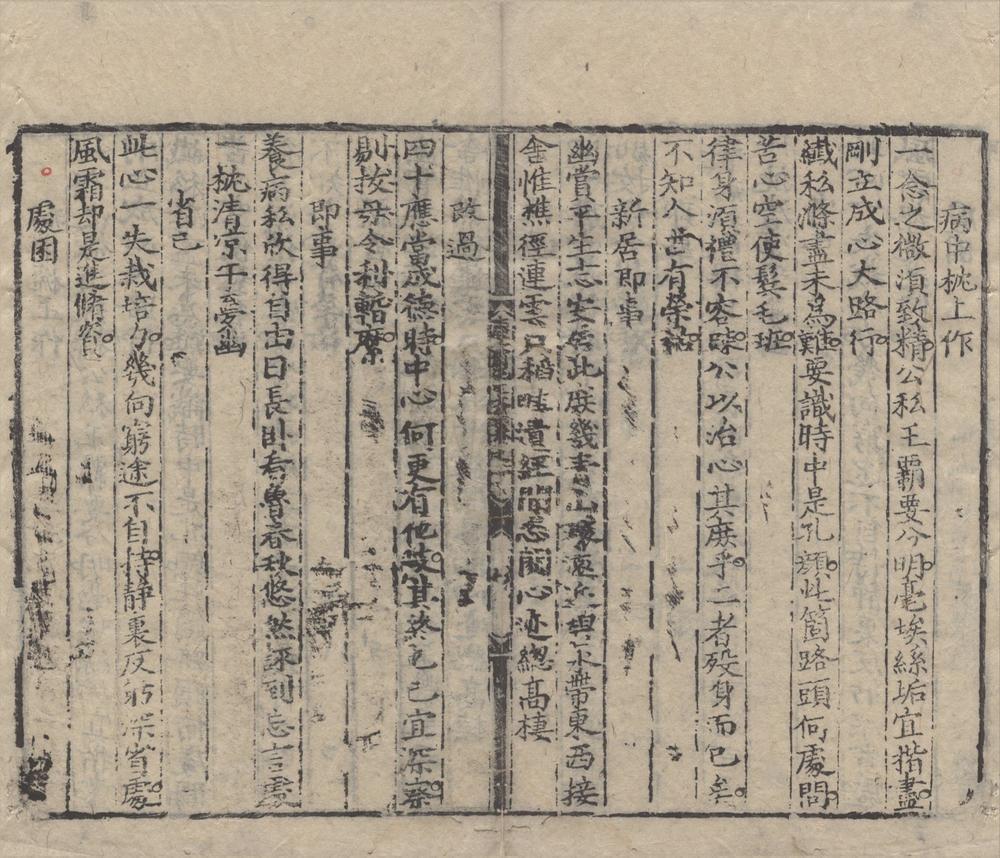 病中枕上作
一念之微湏致精公私王霸要分明毫埃絲垢宜揩盡
剛立成心大路行
纖私滌盡未爲難要識時中是孔顔此箇路頭何處問
苦心空使鬂毛班
律身湏禮不容昧公以治心其庶乎二者歿身而已矣
不知人世有榮祜
新居即事
幽賞平生志安居此厎幾青山環遠近碧水帶東西接
舍惟樵徑連雲只稻畦潰經閒忘閤心迹緫高棲
改過
四十應當成德時中心何更有他歧其終也已宜深察
剔拔毋令利暗縻
即事
養病私欣得自由日長卧看魯春秋悠然評到忘言處
一枕清京午夢幽
省己
此心一失栽培力幾向窮途不自持靜裏反躬深省處
風霜却是進脩資
處困